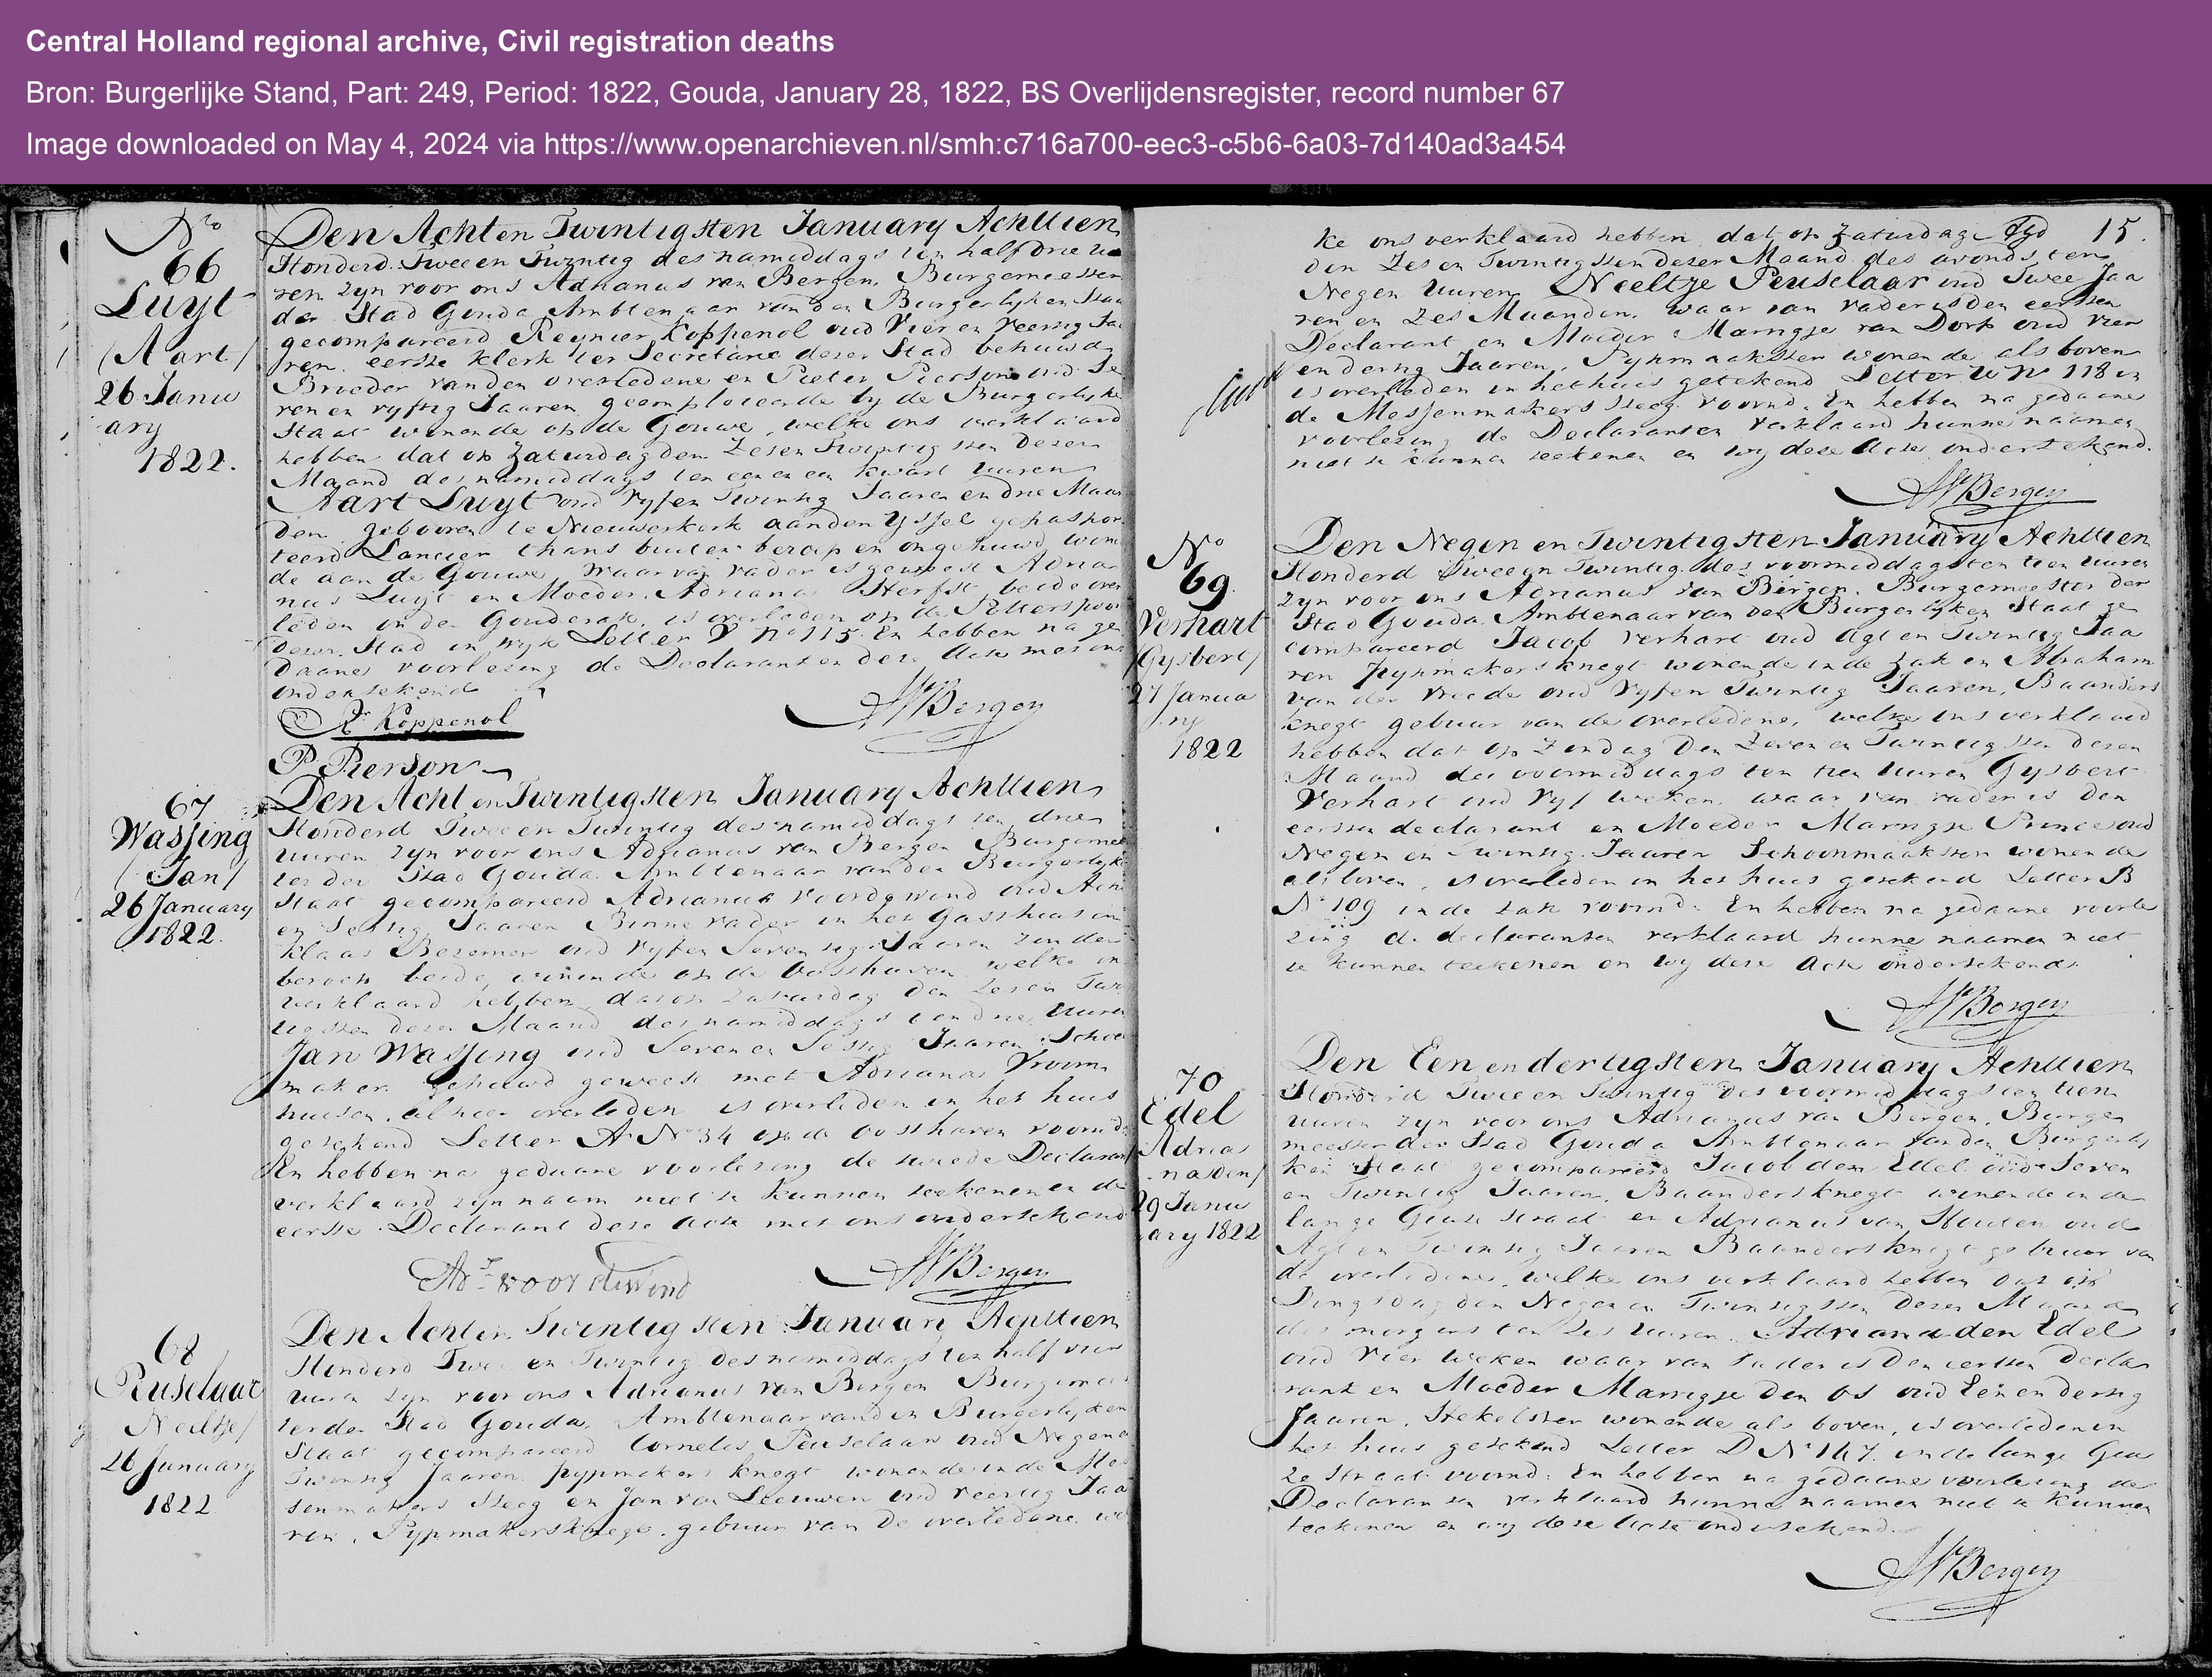 Central Holland regional archive, Civil registration deaths
Bron: Burgerlijke Stand, Part: 249, Period: 1822, Gouda, January 28, 1822, BS Overlijdensregister, record number 67
Image downloaded on May 4, 2024 via https://www.openarchieven.nl/smh:c716a700-eec3-c5b6-6a03-7d140ad3a454
No
66
Luyt
/Aart/
26 Janu
ary
1822.
Den Acht en Twintigsten January Achttien
Honderd Twee en Twintig des namiddags ten half drie uu
ren zyn voor ons Adrianus van Bergen, Burgemeester
der Stad Gouda Ambtenaar van den Burgerlyken Staat
gecompareerd Reynier Koppenol oud Vier en Veertig Jaa
ren eerste klerk ter Secretarie dezer Stad behuwd
Broeder van den overledene en Pieter Pierson oud Se
ven en vyftig Jaaren geemploieerde by de Burgerlyke
Staat wonende op de Gouwe, welke ons verklaard
hebben dat op Zaturdag den Zes en Twintigsten dezer
Maand des namiddags ten een en een kwart uuren
Aart Luyt oud Vyf en Twintig Jaaren en drie Maan
den gebooren te Nieuwerkerk aan den Yssel gepaspor
teerd Lancier thans buiten beroep en ongehuwd wonen
de aan de Gouwe waar van vader is geweest Adria
nus Luyt en Moeder Adriana Herfst beide over
leden in der Gouderak, is overleden op de
dezer Stad in wyk Letter No 115. En hebben na ge
daane voorlezing de Declaranten deze Acte met ons
ondertekend
R Koppenol
AVBergen
P Pierson
67
Wassing
/Jan/
26 January
1822.
Den Acht en Twintigsten January Achttien
Honderd Twee en Twintig des namiddags ten drie
uuren zyn voor ons Adrianus van Bergen Burgemees
ter der Stad Gouda Ambtenaar van den Burgerlyke
Staat gecompareerd Adrianus Voordewind oud Acht
en Sestig Jaaren Binnevader in het Gasthuis en
Klaas Bezemer oud Vyf en Seventig Jaaren zonder
beroep beide wonende op de Oosthaven welke ons
verklaard hebben dat op Zaturdag den Zes en Twin
tigsten dezer Maand des namiddags ten drie Uuren
Jan Wassing oud Seven en Sestig Jaaren Schoen
maker gehuwd geweest met Adriana Vroom
huisen alhier overleden is overleden in het huis
getekend Letter A No 34 op de Oosthaven voornd
En hebben na gedaane voorlezing de tweede Declarant
verklaard zyn naam niet te kunnen teekenen en de
eerste Declarant deze Acte met ons ondertekend
Ads voordewind
AVBergen
68
Peuselaar
Neeltje/
26 January
1822
Den Acht en Twintigsten January Achttien
Honderd Twee en Twintig des namiddags ten half vier
uuren zyn voor ons Adrianus van Bergen Burgemees
ter der Stad Gouda, Ambtenaar van den Burgerlyken
Staat gecompareerd Cornelis Peuselaar oud Negen en
Twintig Jaaren pypmakers knegt wonende in de Mes
senmakers steeg en Jan van Leeuwen oud veertig Jaa
ren, Pypmakersknegt, gebuur van de overledene wel
15.
ke ons verklaard hebben dat op Zaturdag
den Zes en Twintigsten dezer Maand des avonds ten
Negen uuren, Neeltje Peuselaar oud Twee Jaa
ren en Zes Maanden, waar van vader is den eersten
Declarant en Moeder Marrigje van Dorp oud vier
en dertig Jaaren, Pypmaakster wonende als boven
is overleden in het huis getekend Letter No 118 in
de Messenmakers steeg voornd. En hebben na gedaane
voorlezing de Declaranten verklaard hunne naamen
niet te kunnen teekenen en wy deze Acte ondertekend.
AVBergen
No
69
Verhart
/Gysbert/
27 Janua
ry
1822
Den Negen en Twintigsten January Achttien
Honderd Twee en Twintig des voormiddags ten tien uuren
zyn voor ons Adrianus van Bergen, Burgemeester der
Stad Gouda Ambtenaar van den Burgerlyken Staat ge
compareerd Jacob Verhart oud Agt en Twintig Jaa
ren pypmakersknegt wonende in de Zak en Abraham
van der Vreede oud Vyf en Twintig Jaaren, Baanders
knegt gebuur van de overledene, welke ons verklaard
hebben dat op Zondag den Zeven en Twintigsten dezer
Maand des voormiddags ten tien Uuren Gysbert
Verhart oud Vyf weken waar van vader is den
eersten declarant en Moeder Marrigje Prince oud
Negen en Twintig Jaaren Schoonmaakster wonende
als boven, is overleden in het huis getekend Letter B
No 109 in de Zak voornd. En hebben na gedaane voorle
zing de declaranten verklaard hunne naamen niet
te kunnen teekenen en wy deze Acte ondertekend.
AVBergen
70
Edel
Adria
na den/
29 Janu
ary 1822
Den Een en dertigsten January Achttien
Honderd Twee en Twintig des voormiddags ten tien
uuren zyn voor ons Adrianus van Bergen, Burge
meester der Stad Gouda Ambtenaar van den Burgerly
ken Staat gecompareerd Jacob den Edel oud Seven
en Twintig Jaaren, Baandersknegt wonende in de
lange Geuse straat en Adrianus van Houten oud
Agt en Twintig Jaaren Baandersknegt gebuur van
de overledene, welke ons verklaard hebben dat op
Dingsdag den Negen en Twintigsten dezer Maand
des morgens ten zes Uuren Adriana den Edel
oud Vier weken waar van vader is den eersten decla
rant en Moeder Marrigje den Os oud Een en dertig
Jaaren, wonende als boven, is overleden in
het huis getekend Letter D No 147 in de lange Geu
ze straat voornd. En hebben na gedaane voorlezing de
Declaranten verklaard hunne naamen niet te kunnen
teekenen en wy deze Acte ondertekend.
AVBergen